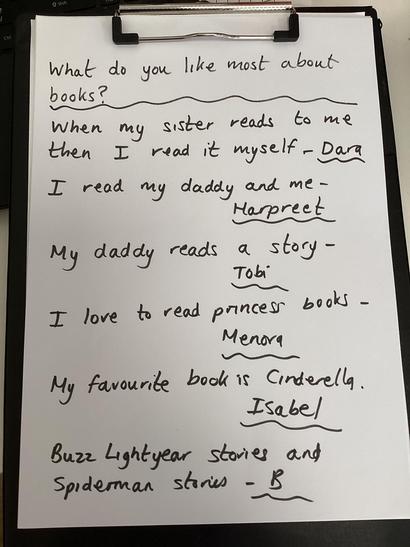 What do you like most about
books?
When my sister reads to me
then I read it myself – Dara
I read my daddy and me –
Harpreet
My daddy reads a story –
Tobi
I love to read princess books –
Menora
My favourite book is Cinderella.
Isabel
Buzz Lightyear stories and
Spiderman stories – B